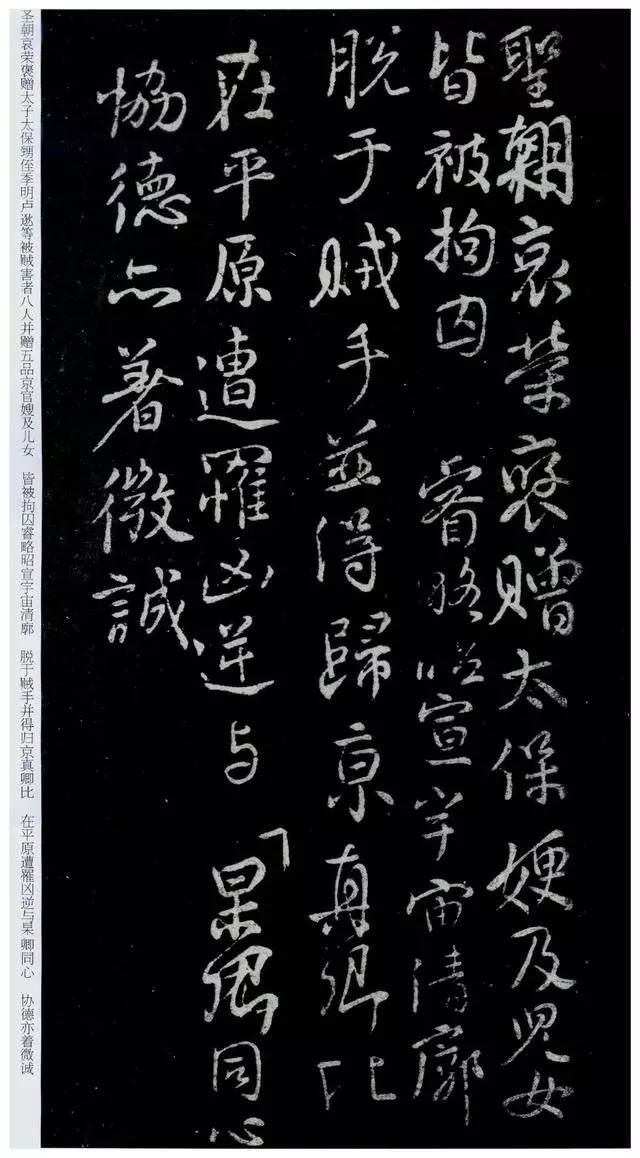 聖朝哀榮褒贈太保嫂及兒女
皆被拘囚 睿略昭宣宇宙清廓
脫于賊手並得歸京真卿比
在平原遭罹凶逆与 杲卿同心
恊德亦著微誠
圣朝哀荣褒赠太子太保甥侄季明卢逖等被贼害者八人并赠五品京官嫂及儿女 皆被拘囚睿略昭宣宇宙清廓 脱于贼手并得归京真卿比 在平原遭罹凶逆与杲卿同心 协德亦着微诚